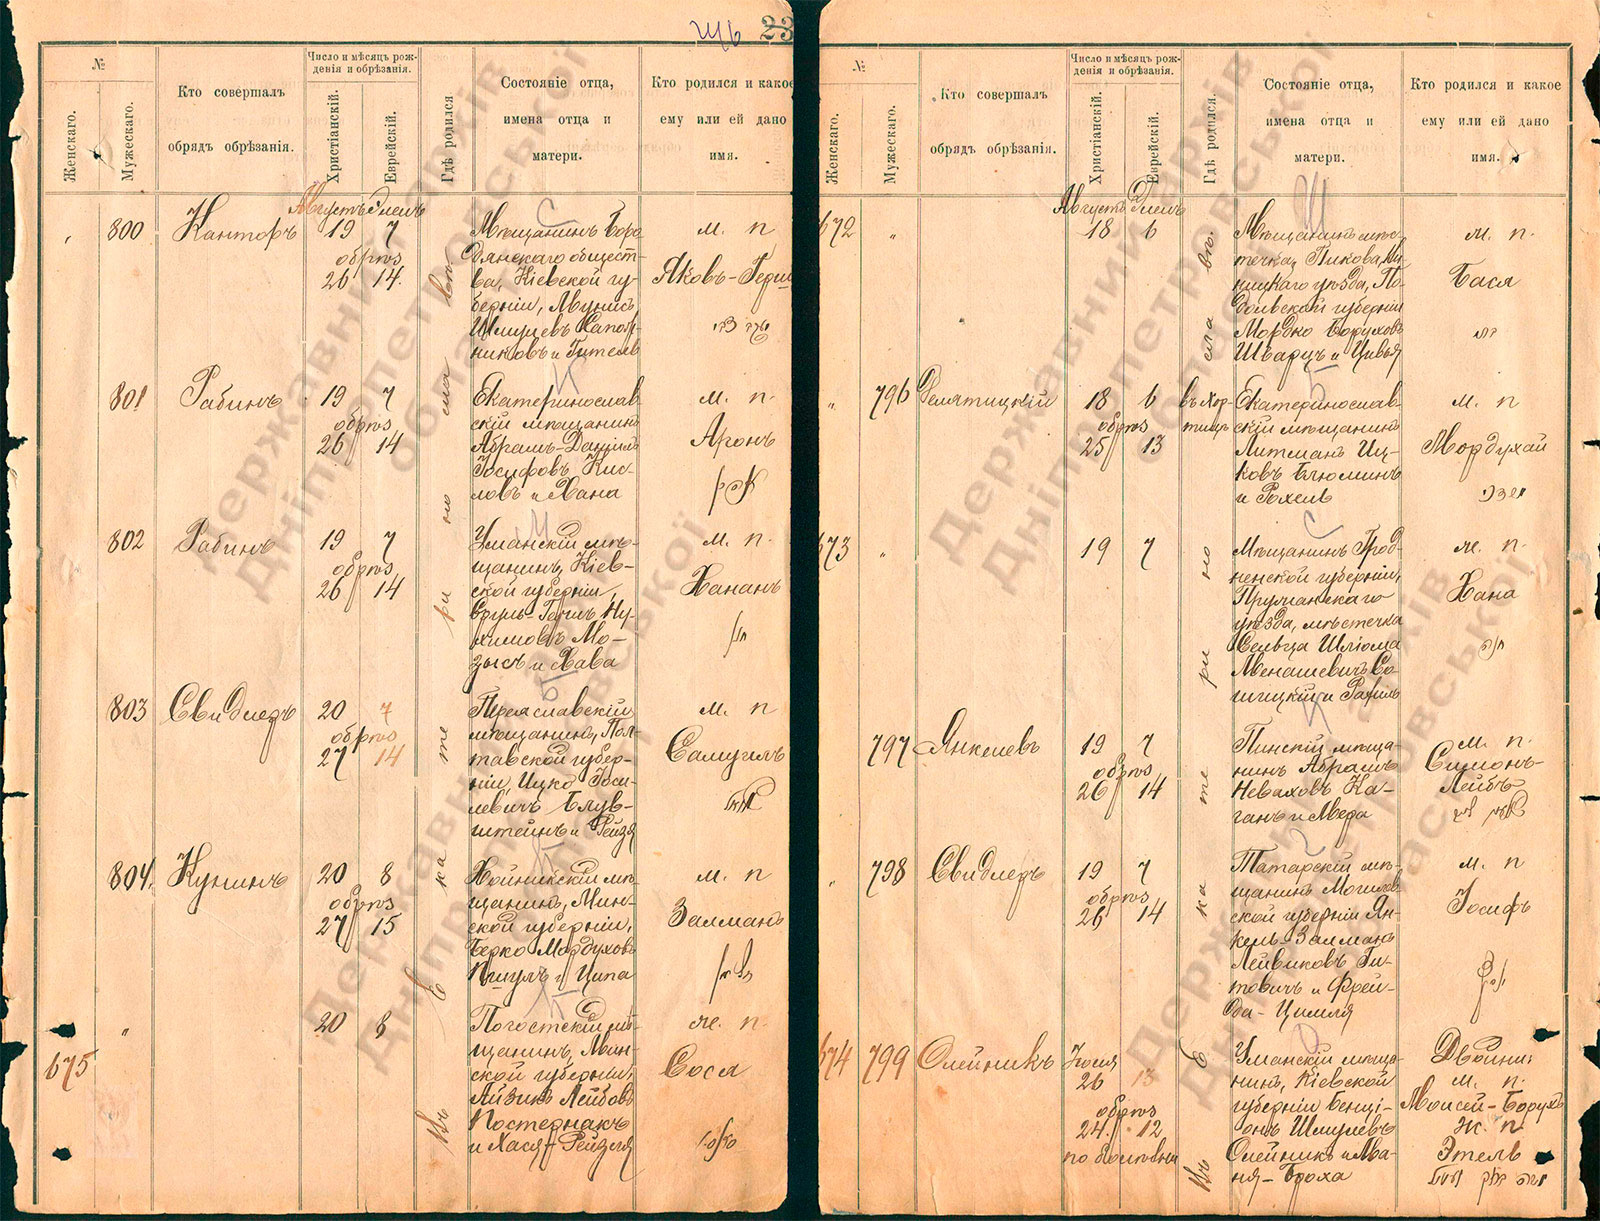 23
№
Женскаго.
Мужескаго.
Кто совершалъ
обрядъ обрѣзанія.
Число и мѣсяцъ рож-
денія и обрѣзанія.
Христіанскій.
Еврейскій.
Гдѣ родился
Состояніе отца,
имена отца и
матери.
Кто родился и какое
ему или ей дано
имя.
Августъ Элелъ
800 Канторъ 19 7
обрѣз
26 14.
Мѣщанинъ Боро
дянскаго общест-
ва, Кіевской гу-
берніи,
Шмулевъ
никовъ и Гитель
м. п
Яковъ-Герш
801 Рабинъ 19 7
обрѣз
26 14
Екатеринослав-
скій мѣщанинъ
Абрамъ-Даніилъ
Іосифовъ Кис-
ловъ и Хана
м. п.
Аронъ
802 Рабинъ 19 7
обрѣз
26 14
Уманскій мѣ-
щанинъ, Кіев-
ской губерніи,
Сруль-Гершъ Ну-
химовъ Мо-
зысъ и Хава
м. п.
Хананъ
803 Свидлеръ 20 7
обрѣз
27 14
Переяславскій
мѣщанинъ, Пол-
тавской губер-
ніи, Ицко Іоси-
левичъ Блув-
штейнъ и Рейзя
м. п
Самуилъ
804. Кунинъ 20 8
обрѣз
27 15
Хойникскій мѣ-
щанинъ, Мин-
ской губерніи,
Берко Мордуховъ
и Ципа
м. п
Залманъ
675 " 20 8
Погостскій мѣ-
щанинъ, Мин-
ской губерніи,
Айзикъ Лейбовъ
Постернакъ
и Хася-Рейзля
ж. п.
Сося
Въ Екатеринославѣ
№
Женскаго.
Мужескаго.
Кто совершалъ
обрядъ обрѣзанія.
Число и мѣсяцъ рож-
денія и обрѣзанія.
Христіанскій.
Еврейскій.
Гдѣ родился.
Состояніе отца,
имена отца и
матери.
Кто родился и какое
ему или ей дано
имя.
Августъ Элелъ
672 " 18 6
Мѣщанинъ мѣс-
течка, Пикова, Ви
ницкаго уѣзда, По-
дольской губерніи
Мордко Боруховъ
Шварцъ и Цивья
ж. п.
Бася
" 796 Делятицкій 18 6
обрѣз
25 13
въ Хор-
тицѣ
Екатеринослав-
скій мѣщанинъ
Литманъ Иц-
ковъ Блюминъ
и Рохель
м. п
Мордухай
673 " 19 7
Мѣщанинъ Грод-
ненской губерніи,
Пружанскаго
уѣзда, мѣстечка
Сельца Шліома
Менашевичъ
и Рахиль
ж. п.
Хана
797 Янкелевъ 19 7
обрѣз
26 14
Пинскій мѣща-
нинъ Абрамъ
Неваховъ Ка-
ганъ и Мера
м. п.
Симонъ-
Лейбъ
" 798 Свидлеръ 19 7
обрѣз
26 14
Татарскій мѣ-
щанинъ Могилев-
ской губерніи Ян-
кель-Залманъ
Лейвиковъ Ги-
товичъ и Фрей-
да-Цимля
м. п
Іосифъ
674 799 Олейникъ Іюля
26 13
обрѣз
24. 12
по болѣзни
Уманскій мѣща-
нинъ, Кіевской
губерніи Бенці-
онъ Шмулевъ
Олейникъ и Ма-
ня-Броха
Двойни:
м. п.
Моисей-Борухъ
ж. п.
Этель
Въ Екатеринославѣ
Державний архів
Дніпропетровської
області